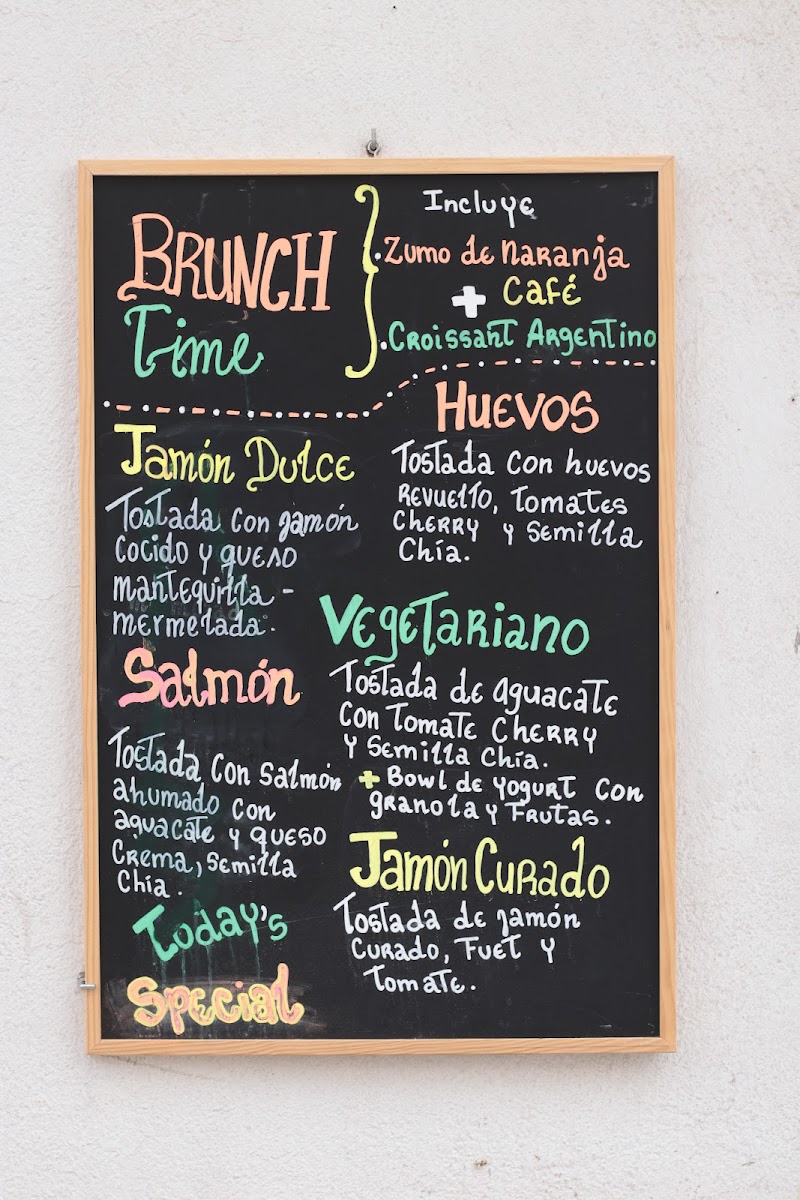 BRUNCH
Time
Incluye
.Zumo de naranja
+ Café
.Croissant Argentino
Jamón Dulce
Tostada con jamón
cocido y queso
mantequilla -
mermelada.
Salmón
Tostada con salmón
ahumado con
aguacate y queso
crema, semilla
chía.
Today's
Special
Huevos
Tostada con huevos
revuelto, tomates
cherry y semilla
chía.
Vegetariano
Tostada de aguacate
con tomate cherry
y semilla chía.
+ Bowl de yogurt con
granola y frutas.
Jamón Curado
Tostada de jamón
curado, fuet y
tomate.